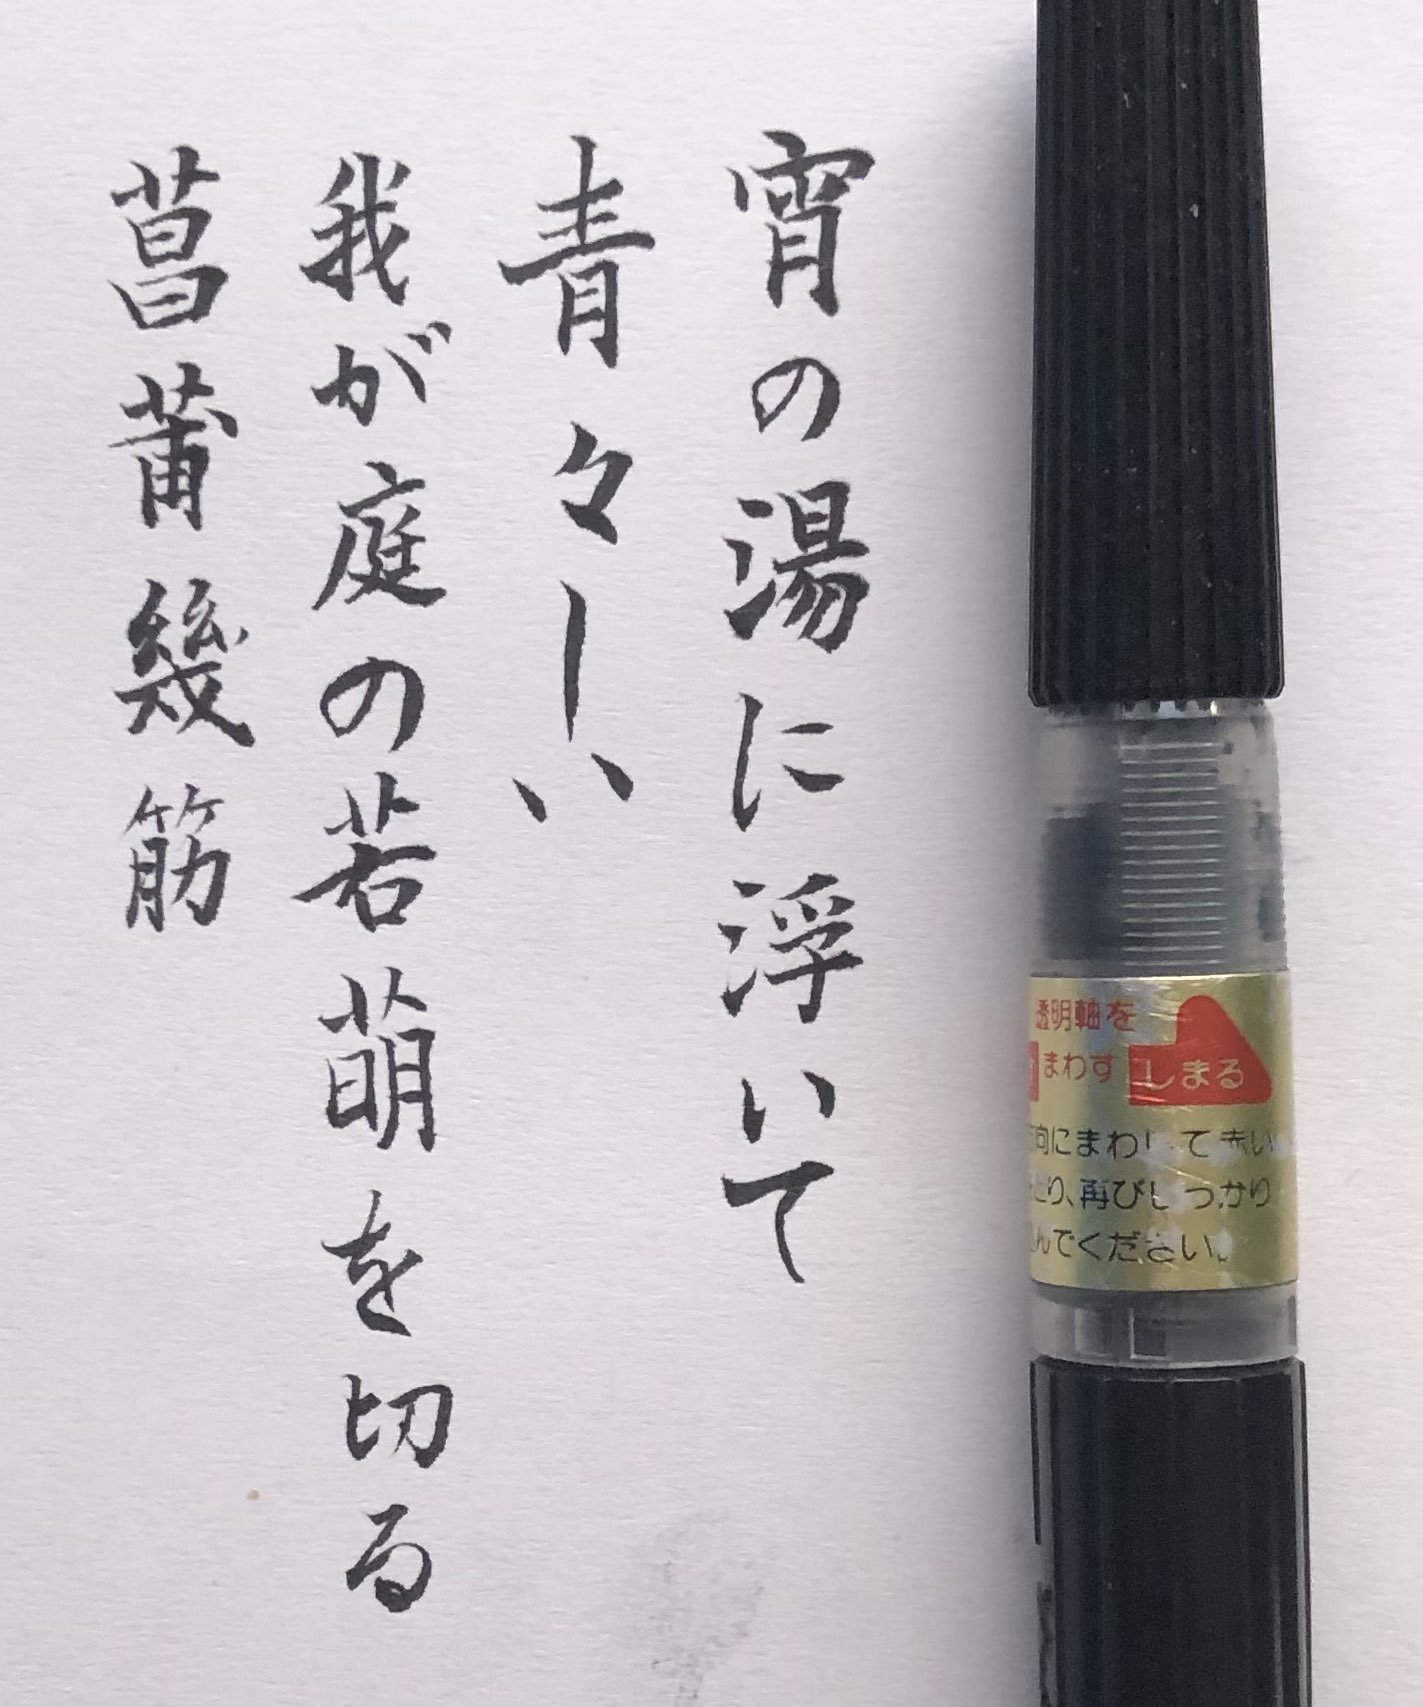 宵の湯に浮いて
青々しい
我が庭の若萌を切る
菖莆幾筋
透明軸を
まわす しまる
向にまわして赤い
とり、再びしっかり
んでください。